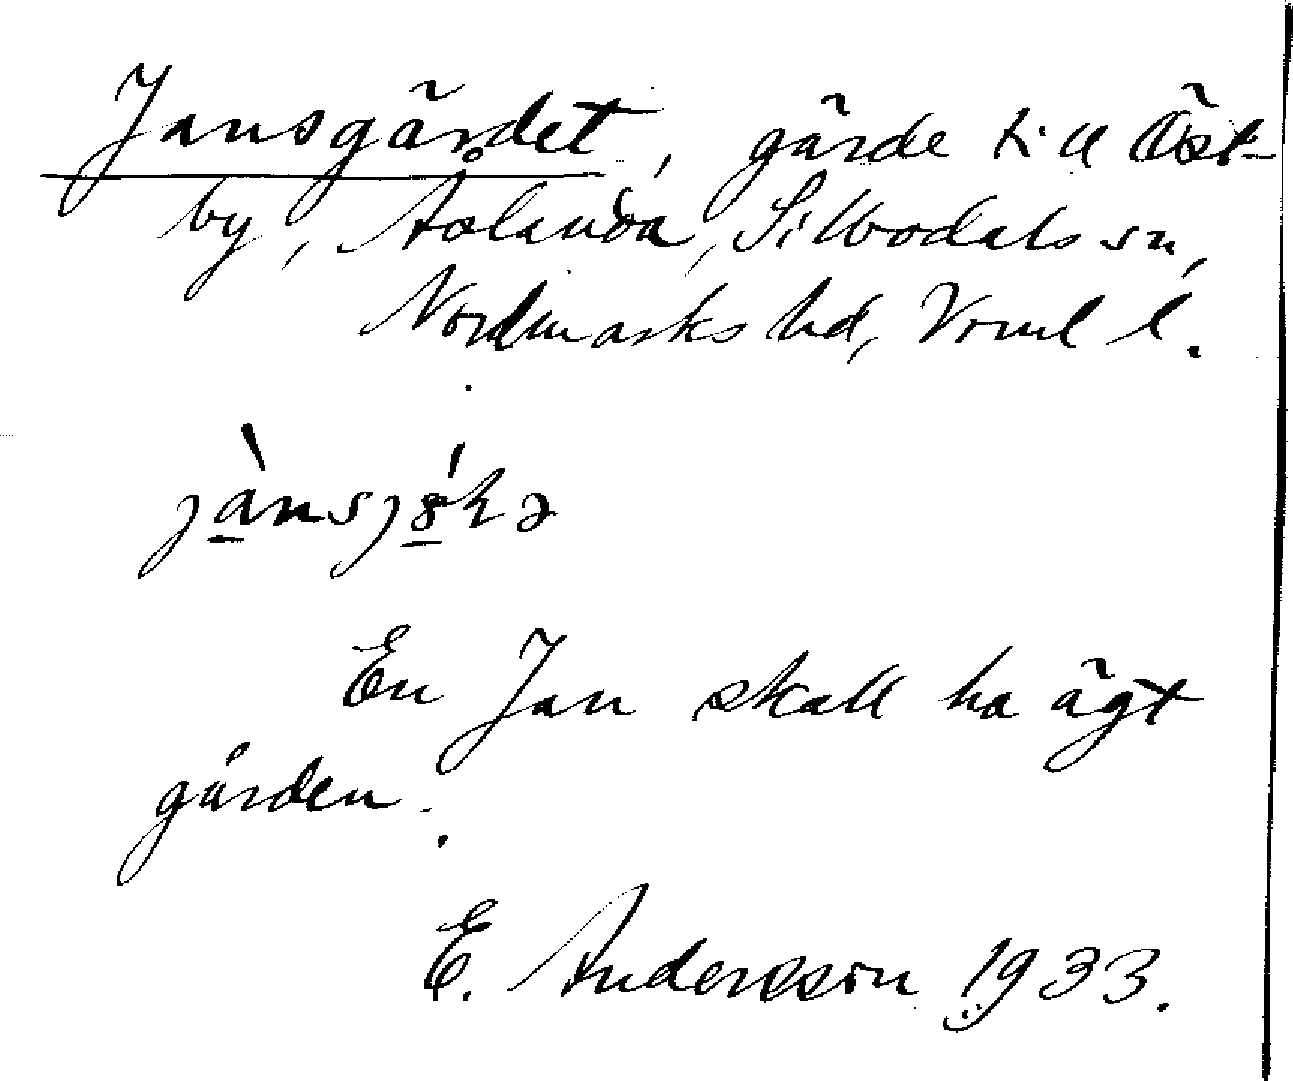 Jansgärdet, gärde till Öst-
by, Solanda, Sillbodals sn,
Nordmarks hd, Vrml l.
En Jan skall ha ägt
gården.
E. Andersson 1933.